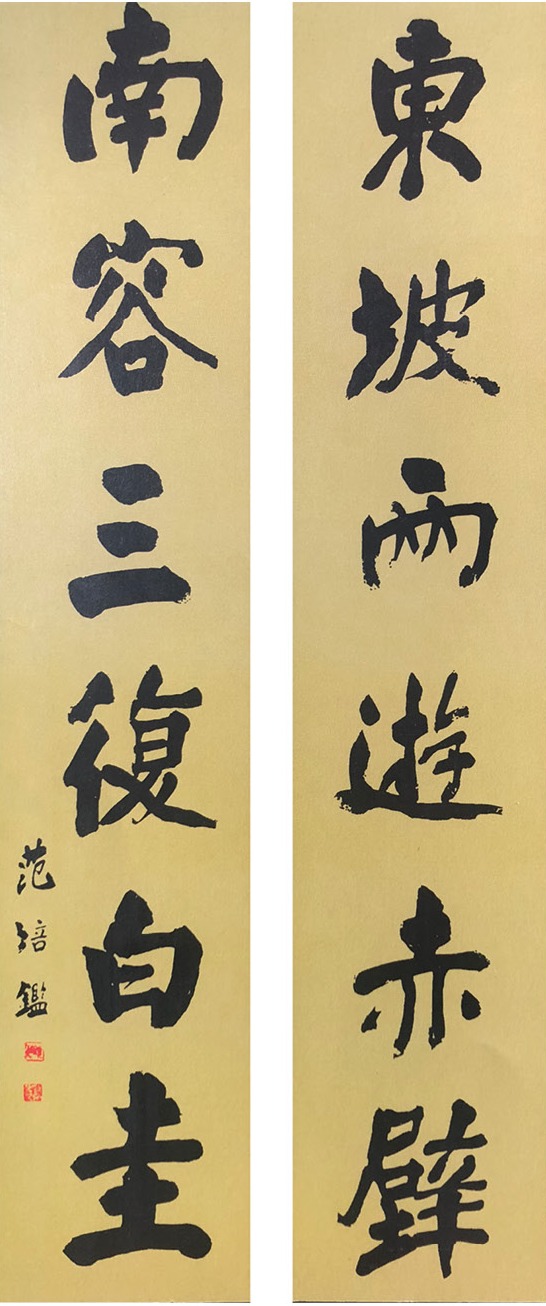 東坡兩遊赤壁
南容三復白圭
范培鑑